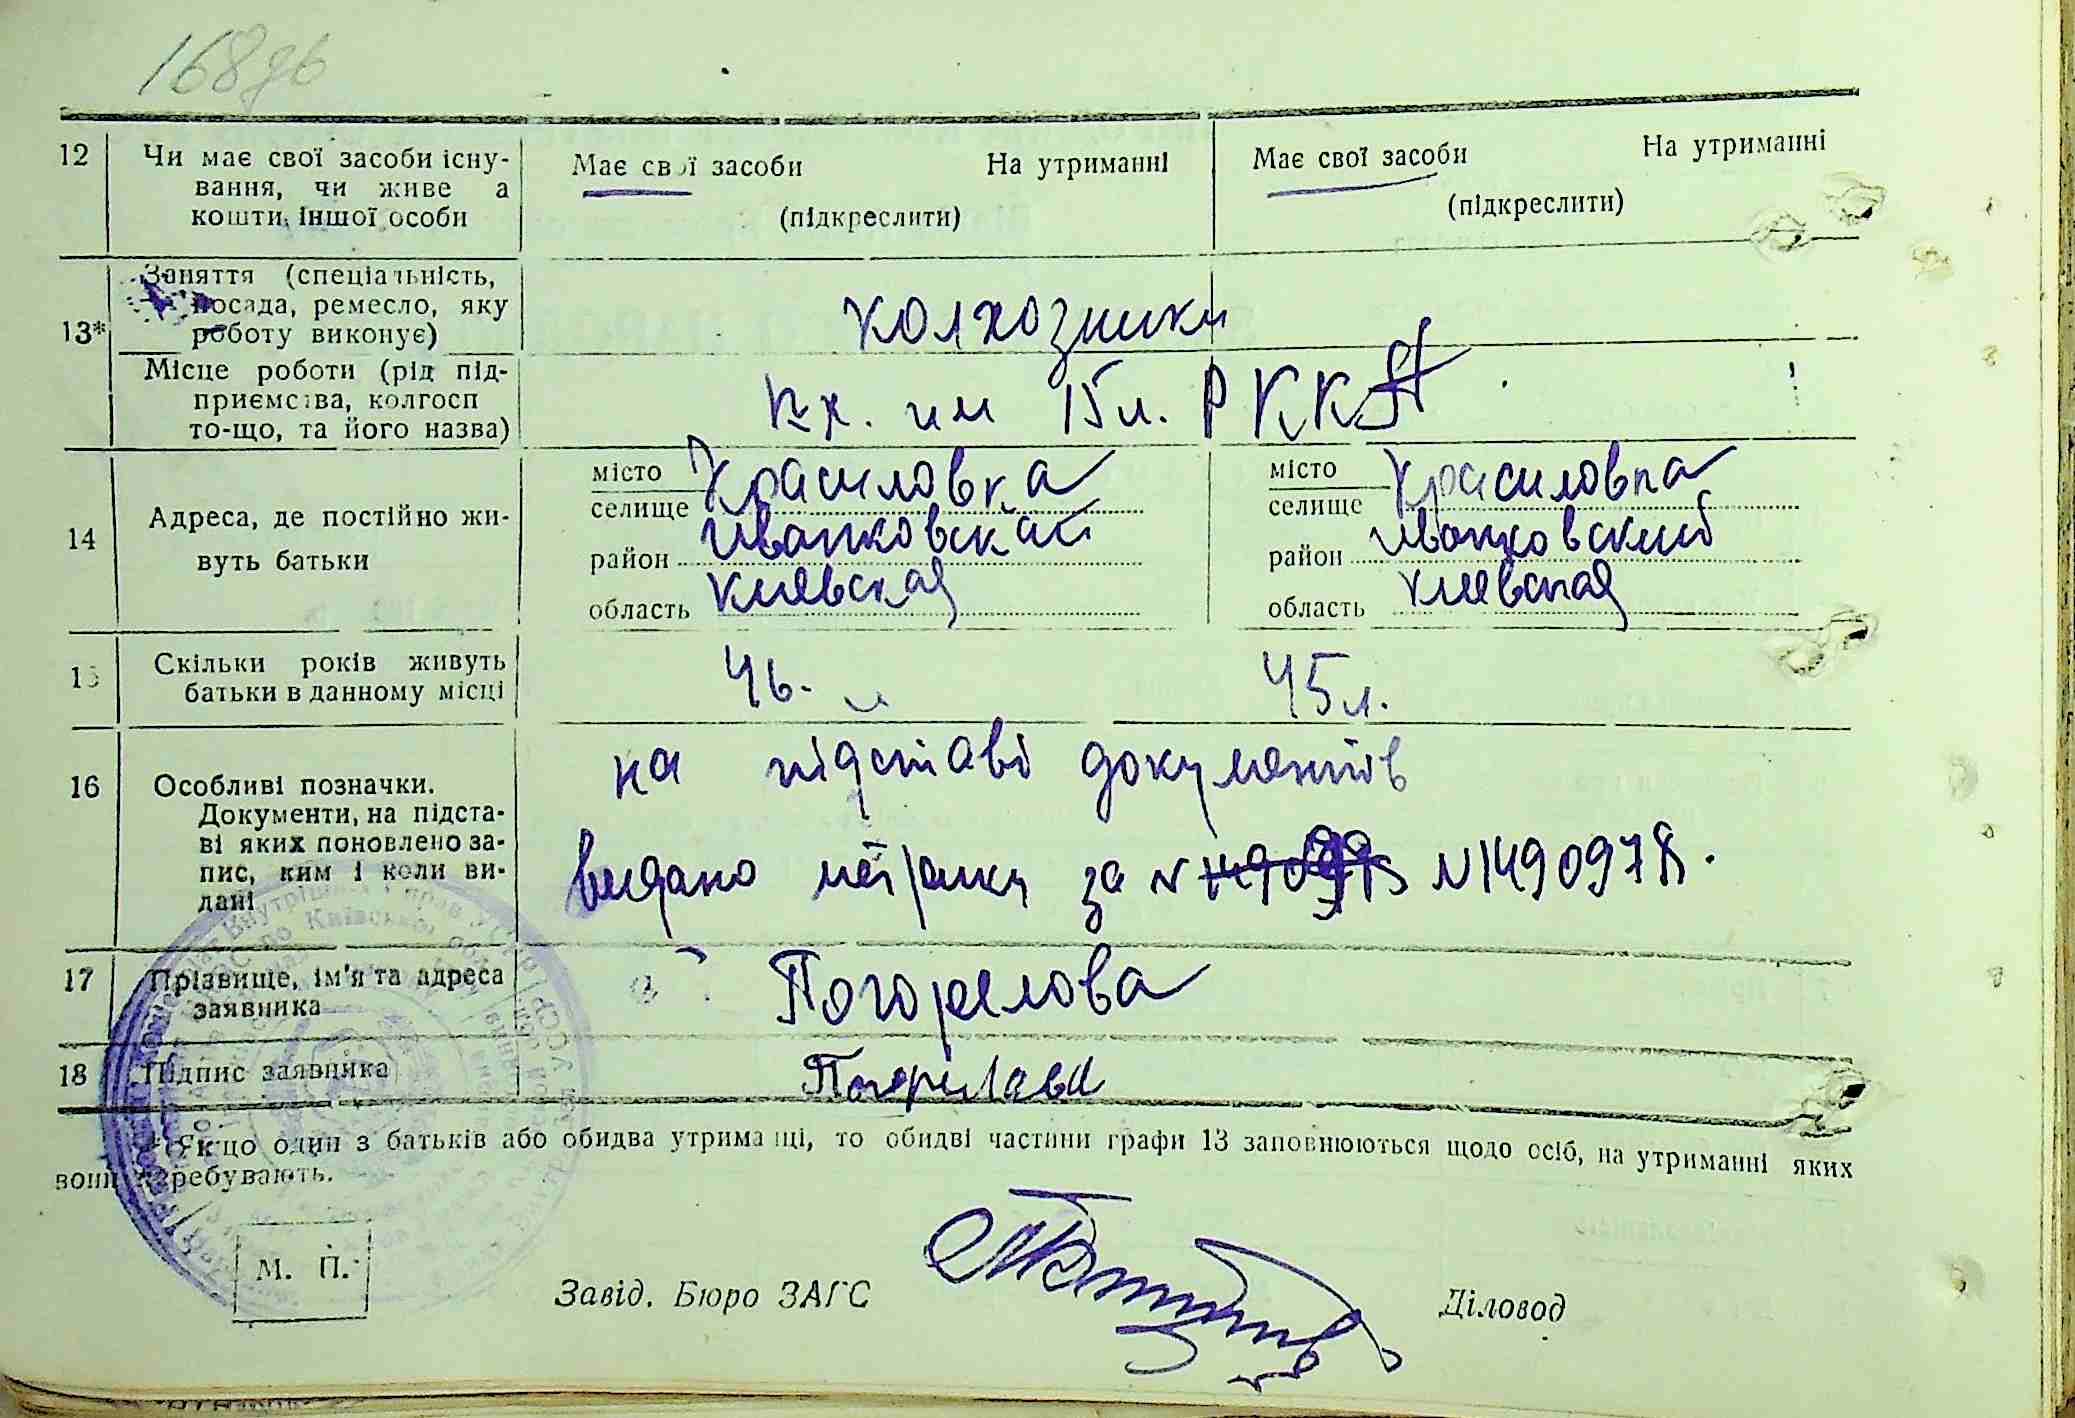 168зв
12 Чи має свої засоби існу-
вання, чи живе а
кошти іншої особи
Має свої засоби На утриманні
(підкреслити)
Має свої засоби На утриманні
(підкреслити)
13* Заняття (спеціальність,
посада, ремесло, яку
роботу виконує)
колхозники
Місце роботи (рід під-
приємства, колгосп
то-що, та його назва)
кх. им 15л. РККА
14 Адреса, де постійно жи-
вуть батьки
місто
селище Красиловка
район Иванковский
область Киевская
місто
селище Красиловка
район Иванковский
область Киевская
15 Скільки років живуть
батьки в данному місці
46. 45л.
16 Особливі позначки.
Документи, на підста-
ві яких поновлено за-
пис, ким і коли ви-
дані
на підставі документів
видано метрику за N N1490978.
17 Прізвище, ім'я та адреса
заявника
Погорелова
18 Підпис заявника
Погорілова
* Якщо один з батьків або обидва утриманці, то обидві частини графи 13 заповнюються щодо осіб, на утриманні яких
вони перебувають.
М. П.
Завід. Бюро ЗАГС Діловод